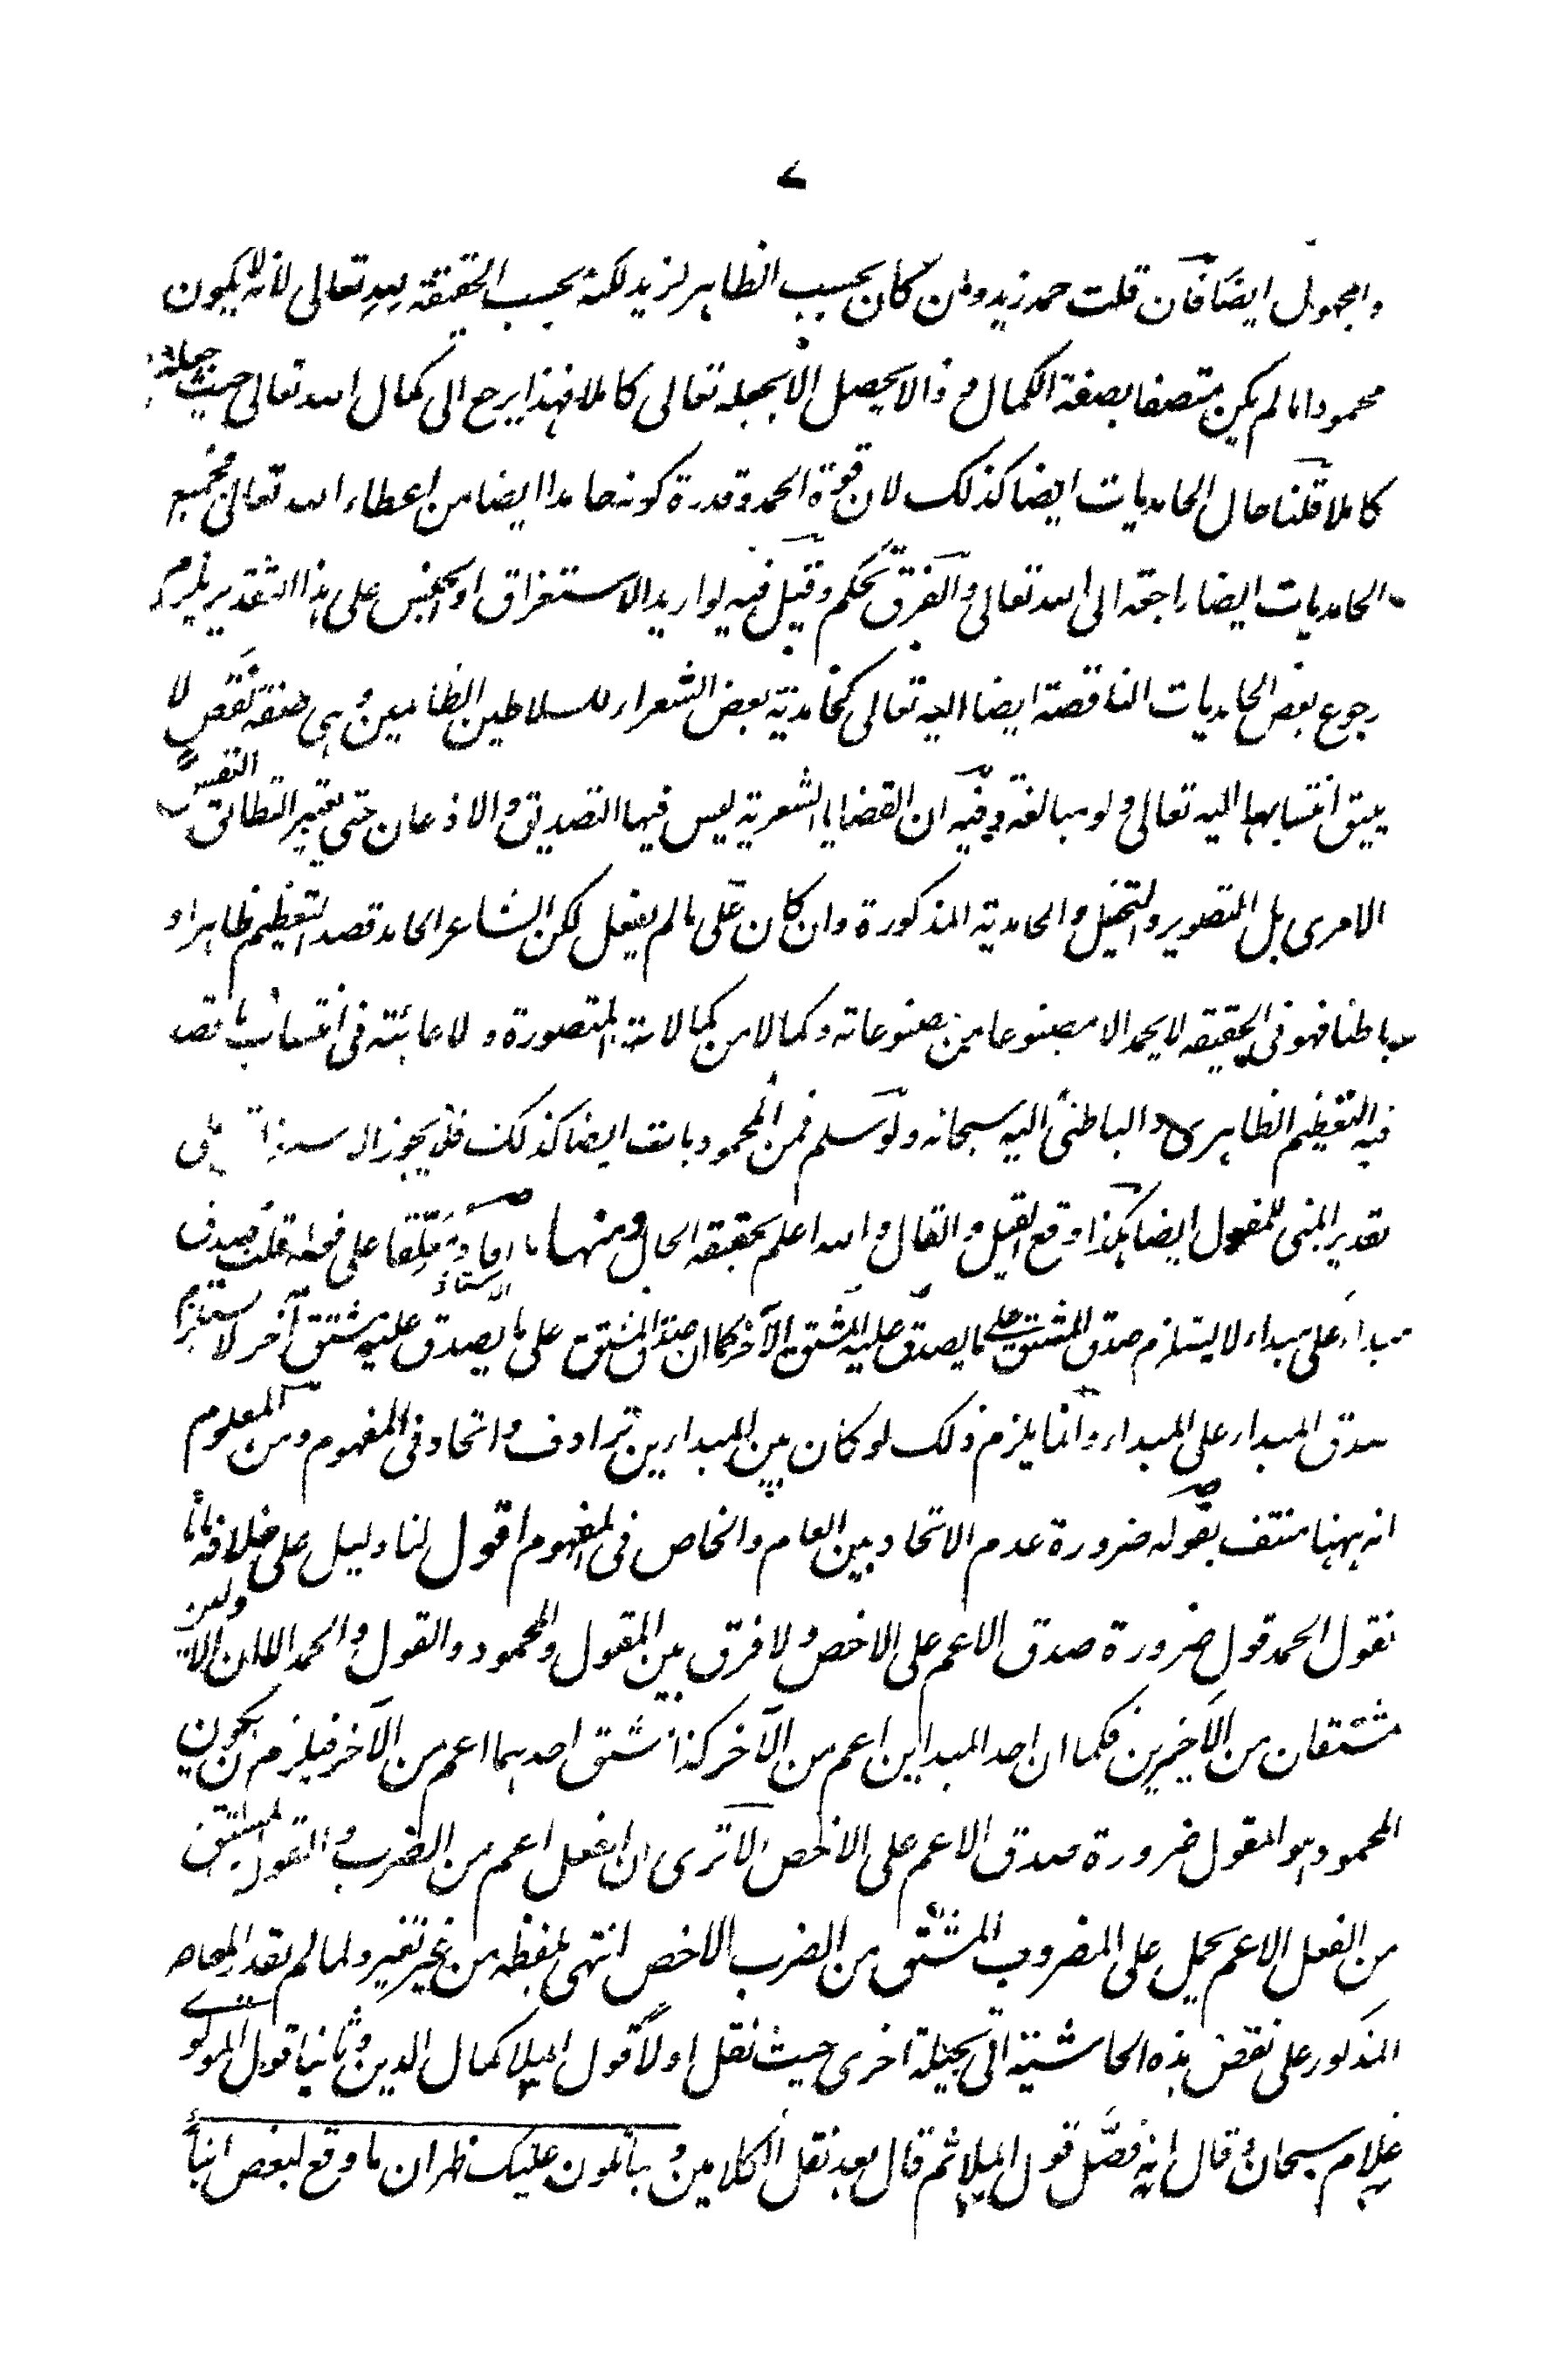 ٧
والمجهول ايضا فان قلت حمد زيد وان كان بحسب الظاهر لزيد لكنه بحسب الحقيقة لله تعالى لانه لا يكون
محمودا ما لم يكن متصفا بصفة الكمال و ذا لا يحصل الا بجعله تعالى كاملا فهذا يرجع الى كمال الله تعالى حيث جعله
كاملا قلنا حال الحامديات ايضا كذلك لان قوة الحمد وقدرة كونه حامدا ايضا من اعطاء الله تعالى فجميع
الحامديات ايضا راجعة الى الله تعالى و الفرق تحكم وقيل فيه لو اريد الاستغراق او الجنس على هذا التقدير يلزم
رجوع بعض الحامديات الناقصة ايضا اليه تعالى كحامدية بعض الشعراء للسلاطين الظالمين و هي صفة نقص لا
يليق انتسابها اليه تعالى و لو مبالغة و فيه ان القضايا الشعرية ليس فيها التصديق و الاذعان حتى يعتبر التطابق النفس
الامرى بل التصوير والتخيل و الحامدية المذكورة وان كان على ما لم يفعل لكن الشاعر الحامد قصد التعظيم ظاهرا و
باطنا فهو فى الحقيقة لا يحمد الا مصنوعا من مصنوعاته و كمالا من كمالاته المتصورة و لا عائبة فى انتساب ما قصد
فيه التعظيم الظاهرى و الباطنى اليه سبحانه و لو سلم فمن المحموديات ايضا كذلك فلا يجوز على
تقدير المبنى للمفعول ايضا هكذا وقع القيل و القال و الله اعلم بحقيقة الحال ومنها ما افاد الاستاذ معلقا على قوله قلت صدق
مبداء على مبداء لا يستلزم صدق المشتق على ما يصدق عليه المشتق الآخر كما ان صدق المشتق على ما يصدق عليه مشتق آخر لا يستلزم
صدق المبداء على المبداء و انما يلزم ذلك لو كان بين المبدارين ترادف و اتحاد فى المفهوم و من المعلوم
انه ههنا منتف بقوله ضرورة عدم الاتحاد بين العام و الخاص فى المفهوم اقول لنا دليل على خلافه فانا
نقول الحمد قول ضرورة صدق الاعم على الاخص و لا فرق بين المقول و المحمود و القول و الحمد الا ان الاولين
مشتقان من الآخيرين فكما ان احد المبداين اعم من الآخر كذا مشتق احدهما اعم من الآخر فيلزم ان يكون
المحمود هو المقول ضرورة صدق الاعم على الاخص الا ترى ان الفعل اعم من الضرب و المقول المشتق
من الفعل الاعم يحمل على المضروب المشتق من الضرب الاخص انتهى بلفظه من غير تغير و لما لم يقدر المعاصر
المذكور على نقض هذه الحاشية اتى بحيلة اخرى حيث نقل اولاً قول الملا كمال الدين و ثانيا قول المولوى
غلام سبحان و قال انه فصّل قول الملا ثم قال بعد نقل الكلامين و بما تلون عليك ظهر ان ما وقع لبعض ابناء